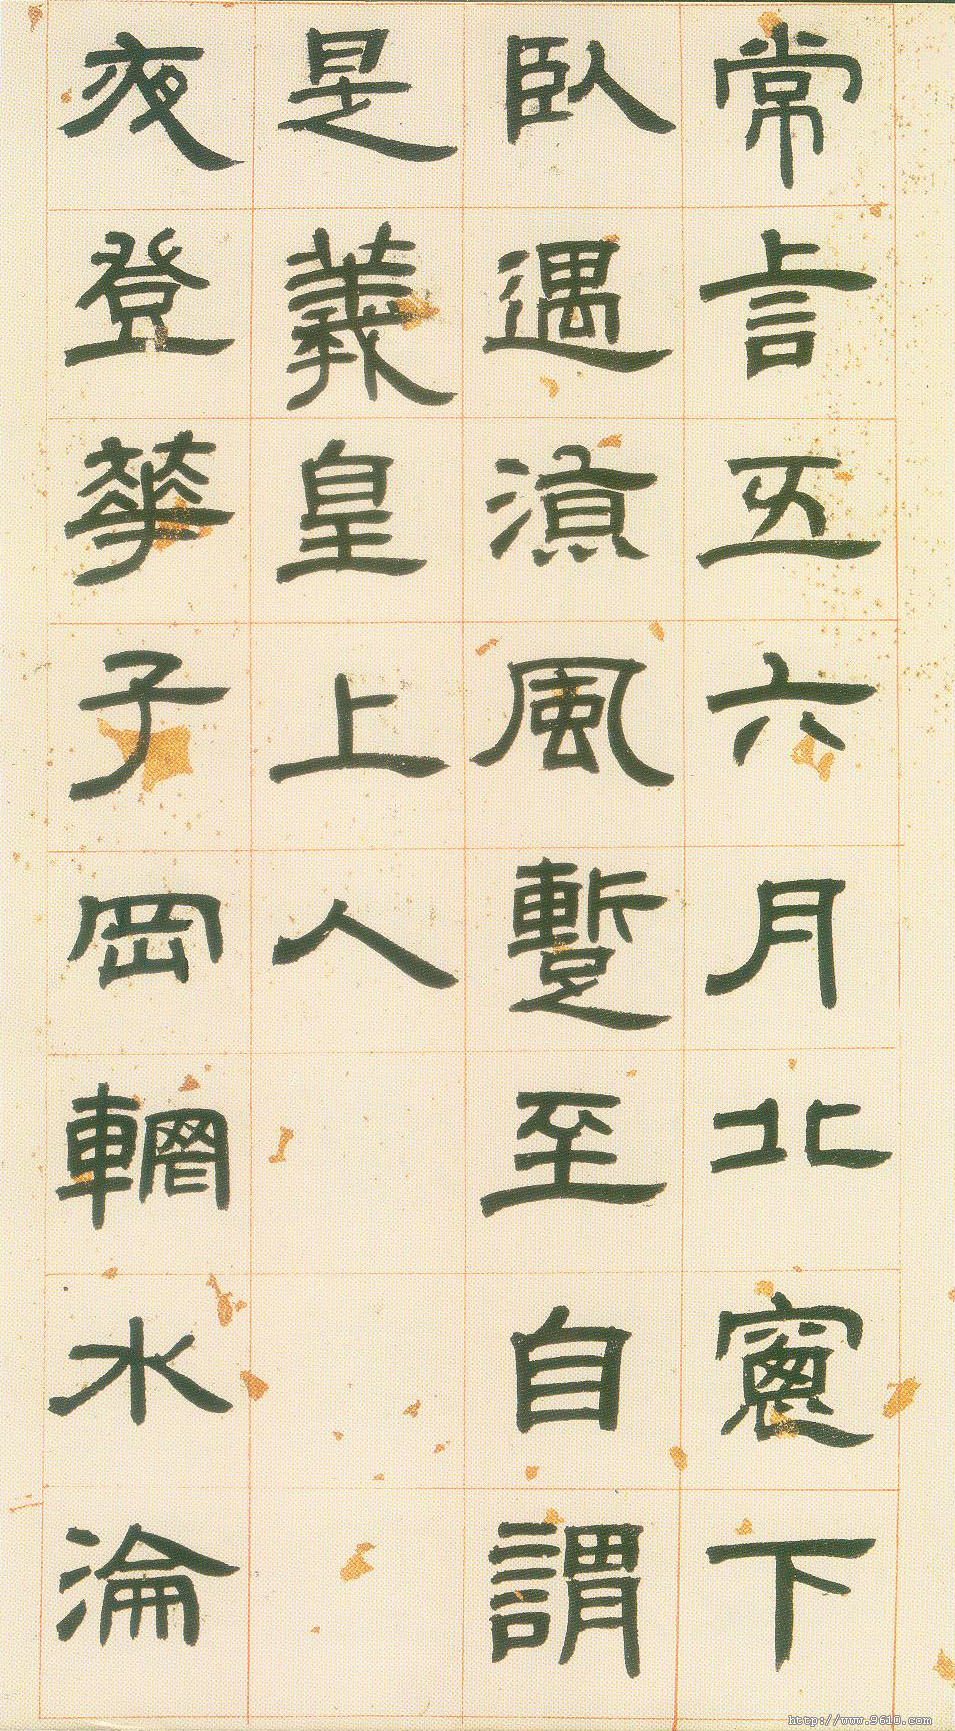 常言五六月北窻下
臥遇涼風暫至自謂
是羲皇上人
夜登華子岡輞水淪
http://www.9610.com